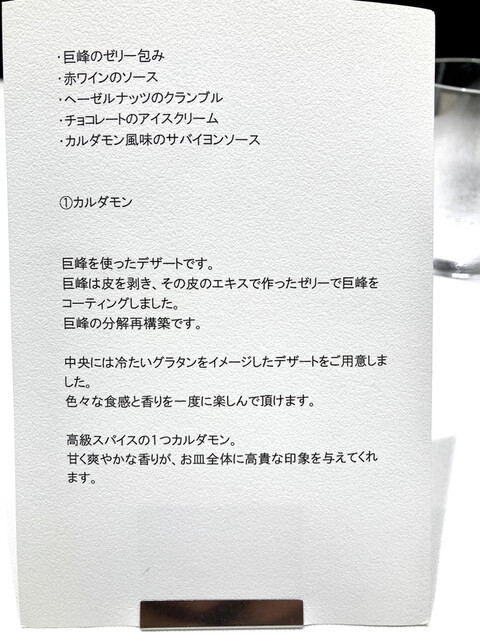 ・巨峰のゼリー包み
・赤ワインのソース
・ヘーゼルナッツのクランブル
・チョコレートのアイスクリーム
・カルダモン風味のサバイヨンソース
①カルダモン
巨峰を使ったデザートです。
巨峰は皮を剥き、その皮のエキスで作ったゼリーで巨峰を
コーティングしました。
巨峰の分解再構築です。
中央には冷たいグラタンをイメージしたデザートをご用意しま
した。
色々な食感と香りを一度に楽しんで頂けます。
高級スパイスの１つカルダモン。
甘く爽やかな香りが、お皿全体に高貴な印象を与えてくれ
ます。